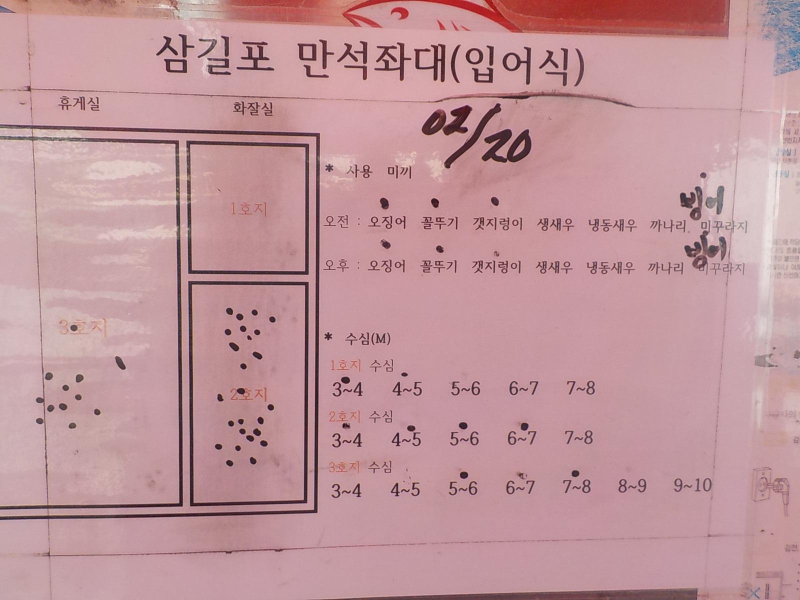 삼길포 만석좌대(입어식)
휴게실 화잘실
02/20
* 사용 미끼
1호지
빙어
오전 : 오징어 꼴뚜기 갯지렁이 생새우 냉동새우 까나리 미꾸라지
빙어
오후 : 오징어 꼴뚜기 갯지렁이 생새우 냉동새우 까나리 미꾸라지
3호지
* 수심(M)
1호지 수심
3~4 4~5 5~6 6~7 7~8
2호지
2호지 수심
3~4 4~5 5~6 6~7 7~8
3호지 수심
3~4 4~5 5~6 6~7 7~8 8~9 9~10